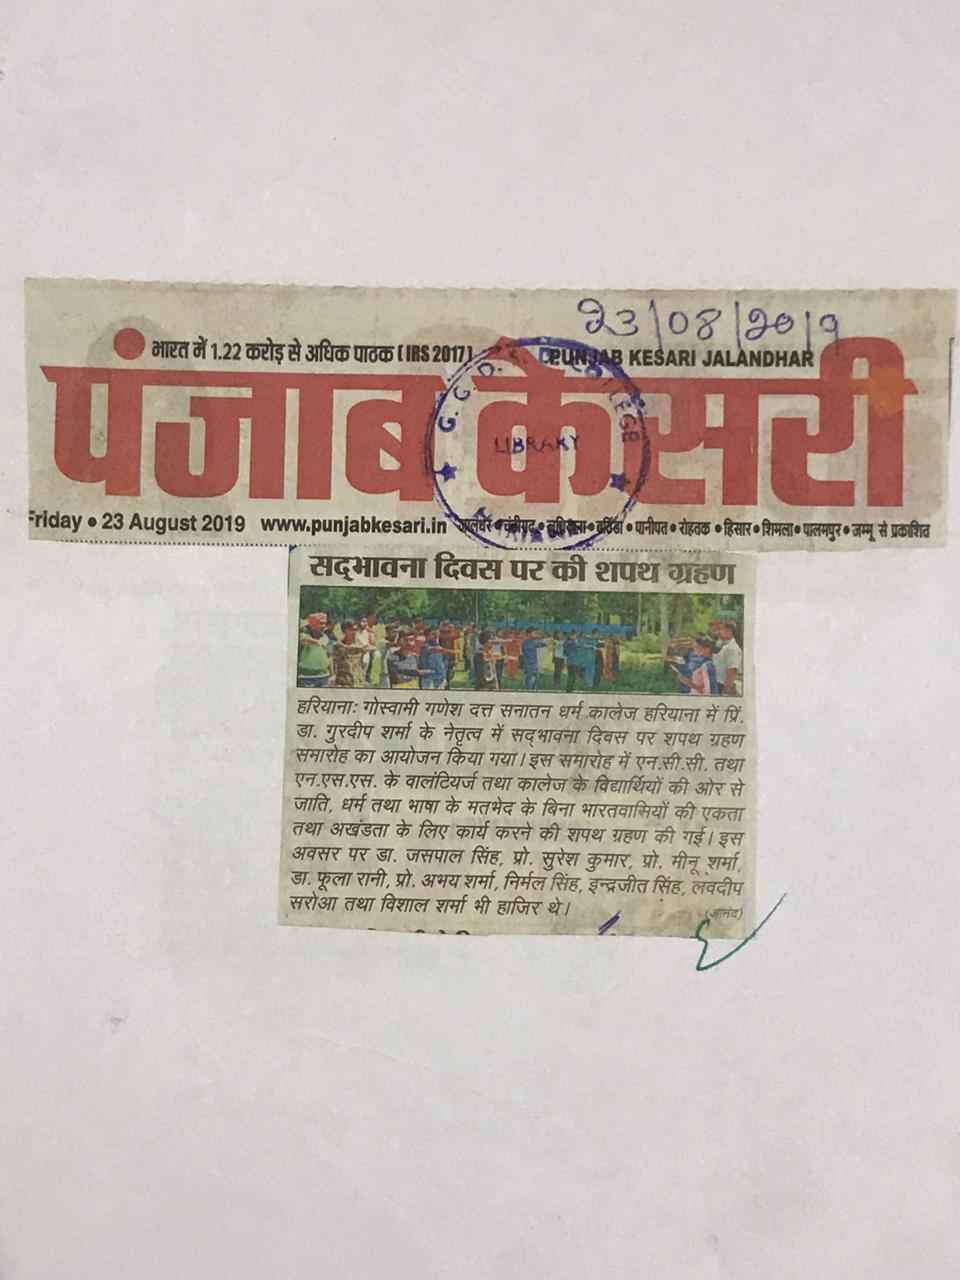 23/08/2019
भारत में 1.22 करोड़ से अधिक पाठक (IRS 2017) PUNJAB KESARI JALANDHAR
पंजाब केसरी
G. G. D. S. D. COLLEGE
LIBRARY
Friday • 23 August 2019 www.punjabkesari.in जालंधर • चंडीगढ़ • लुधियाना • बठिंडा • पानीपत • रोहतक • हिसार • शिमला • पालमपुर • जम्मू से प्रकाशित
सद्भावना दिवस पर की शपथ ग्रहण
हरियाना: गोस्वामी गणेश दत्त सनातन धर्म कालेज हरियाना में प्रिं.
डा. गुरदीप शर्मा के नेतृत्व में सद्भावना दिवस पर शपथ ग्रहण
समारोह का आयोजन किया गया। इस समारोह में एन.सी.सी. तथा
एन.एस.एस. के वालंटियर्ज तथा कालेज के विद्यार्थियों की ओर से
जाति, धर्म तथा भाषा के मतभेद के बिना भारतवासियों की एकता
तथा अखंडता के लिए कार्य करने की शपथ ग्रहण की गई। इस
अवसर पर डा. जसपाल सिंह, प्रो. सुरेश कुमार, प्रो. मीनू शर्मा,
डा. फूला रानी, प्रो. अभय शर्मा, निर्मल सिंह, इन्द्रजीत सिंह, लवदीप
सरोआ तथा विशाल शर्मा भी हाजिर थे।
(आनंद)